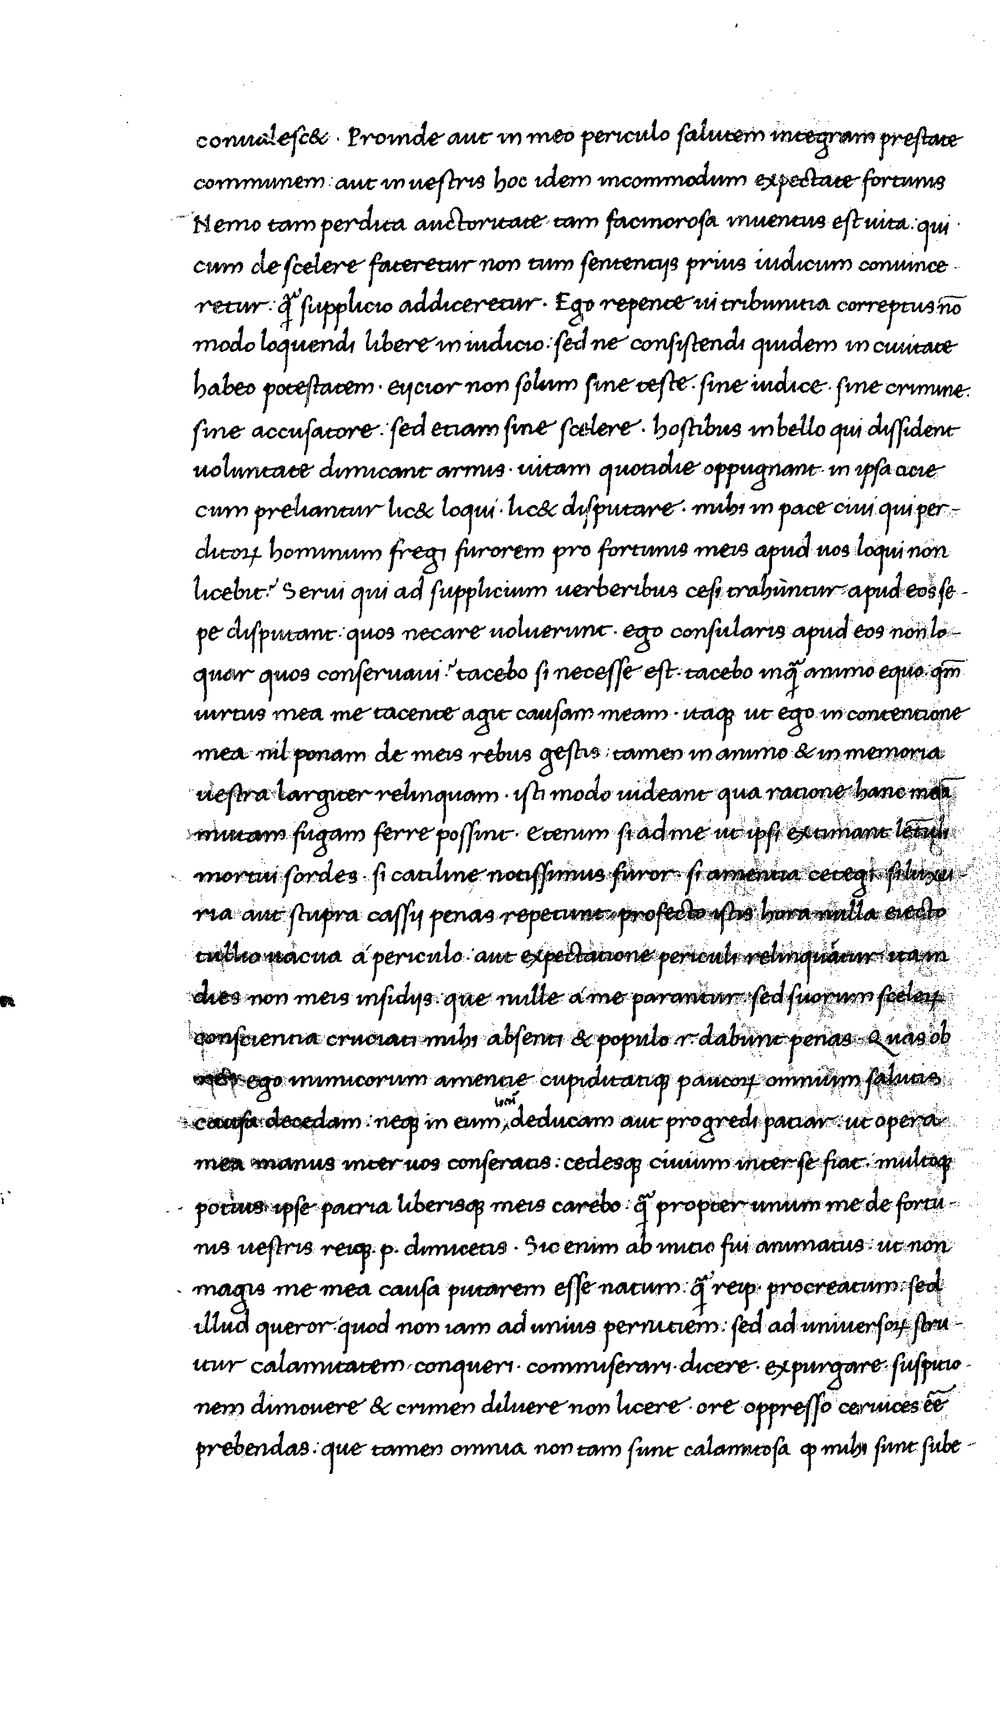 conualesc& · Proinde aut in meo periculo salutem integram prestate
communem: aut in uestris hoc idem incommodum expectate fortunis
Nemo tam perdita auctoritate tam facinorosa inuentus est uita: qui
cum de scelere fateretur non tum sententijs prius iudicum conuince-
retur: qᷓ supplicio addiceretur · Ego repente ui tribunitia correptus nō
modo loquendi libere in iudicio: sed ne consistendi quidem in ciuitate
habeo potestatem · eijcior non solum sine teste · sine iudice · sine crimine·
sine accusatore: sed etiam sine scelere · hostibus in bello qui dissident
uoluntate dimicant armis · uitam quotidie oppugnant in ipsa acie
cum preliantur lic& loqui · lic& disputare · mihi in pace ciui qui per-
ditoꝝ hominum fregi furorem pro fortunis meis apud uos loqui non
licebit? Serui qui ad supplicium uerberibus cesi trahuntur apud eos se-
pe disputant: quos necare uoluerunt · ego consularis apud eos non lo-
quar quos conseruaui? tacebo si necesse est · tacebo inqᷓ animo equo · qm̄
uirtus mea me tacente agit causam meam · itaqꝫ ut ego in contentione
mea nil ponam de meis rebus gestis: tamen in animo & in memoria
uestra largiter relinquam · isti modo uideant qua ratione hanc meā
inuitam fugam ferre possint · etenim si ad me ut ipsi extimant lētuli
mortui sordes · si catiline notissimus furor · si amentia cetegi · si luxu-
ria aut stupra cassij penas repetunt · profecto istis hora nulla eiecto
tullio uacua á periculo · aut expectatione periculi relinquātur ita in
dies non meis insidijs · que nulle á me parantur: sed suorum sceleꝝ
conscientia cruciati mihi absenti & populo r· dabunt penas · Quas ob
ego inimicorum amentie cupiditatiqꝫ paucoꝝ omnium salutis
causa decedam: neqꝫ in eum locū deducam aut progredi patiar: ut opera
mea manus inter uos conseratis: cedesqꝫ ciuium inter se fiat · multoqꝫ
potius ipse patria liberisqꝫ meis carebo: qᷓ propter unum me de fortu-
nis uestris reiqꝫ · p · dimicetis · Sic enim ab initio fui animatus: ut non
magis me mea causa putarem esse natum: qᷓ reip· procreatum: sed
illud queror quod non iam ad unius pernitiem: sed ad uniuersoꝝ stru-
itur calamitatem · conqueri · commiserari · dicere · expurgare · suspitio-
nem dimouere & crimen diluere non licere · ore oppresso ceruices eē
prebendas: que tamen omnia non tam sunt calamitosa ꝙ mihi sunt sube-